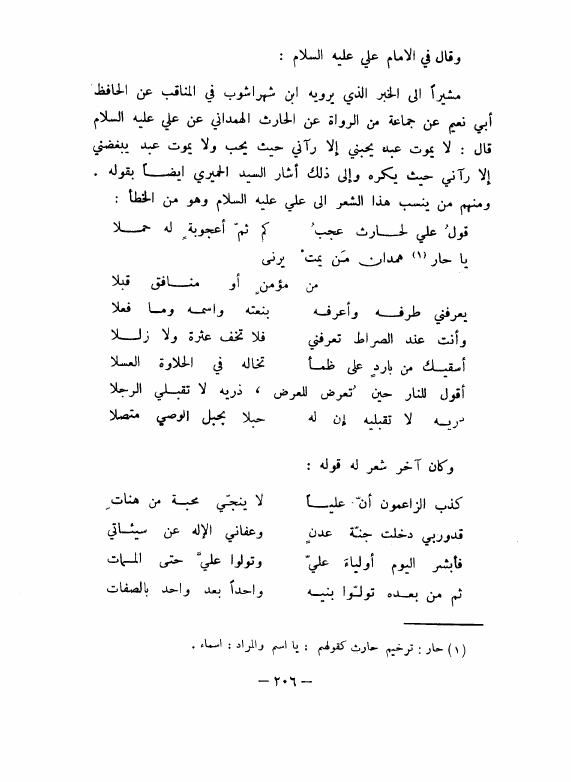 وقال في الامام علي عليه السلام :
مشيراً الى الخبر الذي يرويه ابن شهراشوب في المناقب عن الحافظ
أبي نعيم عن جماعة من الرواة عن الحارث الهمداني عن علي عليه السلام
قال : لا يموت عبد يحبني إلا رآني حيث يحب ولا يموت عبد يبغضني
إلا رآني حيث يكره وإلى ذلك أشار السيد الحميري ايضـــاً بقوله .
ومنهم من ينسب هذا الشعر الى علي عليه السلام وهو من الخطأ :
قولُ علي لحـــارث عجبُ كم ثمّ أعجوبةٍ له حمـــلا
يا حار (١) همدان مَن يمتْ يرنى
من مؤمنٍ أو منـــافق قبلا
يعرفني طرفـــه وأعرفه بنعته واسمه ومـا فعلا
وأنت عند الصراط تعرفني فلا تخف عثرة ولا زلـــلا
أسقيـك من باردٍ على ظمـأ تخاله في الحلاوة العسلا
أقول للنار حين تُعرض للعرض ، ذريه لا تقبـلي الرجلا
ذريـه لا تقبليه إن له حبلا بحبل الوصي متصلا
وكان آخر شعر له قوله :
كذب الزاعمون أنّ عليـــاً لا ينجّي محبة من هناتٍ
قدوربي دخلت جنّة عدنٍ وعفاني الإله عن سيئـاتي
فأبشر اليوم أولياءَ عليّ وتولوا عليّ حتى المـمات
ثم من بعـده تولـّوا بنيـه واحداً بعد واحد بالصفات
(١) حار : ترخيم حارث كقولهم : يا اسم والمراد : اسماء .
— ٢٠٦ —